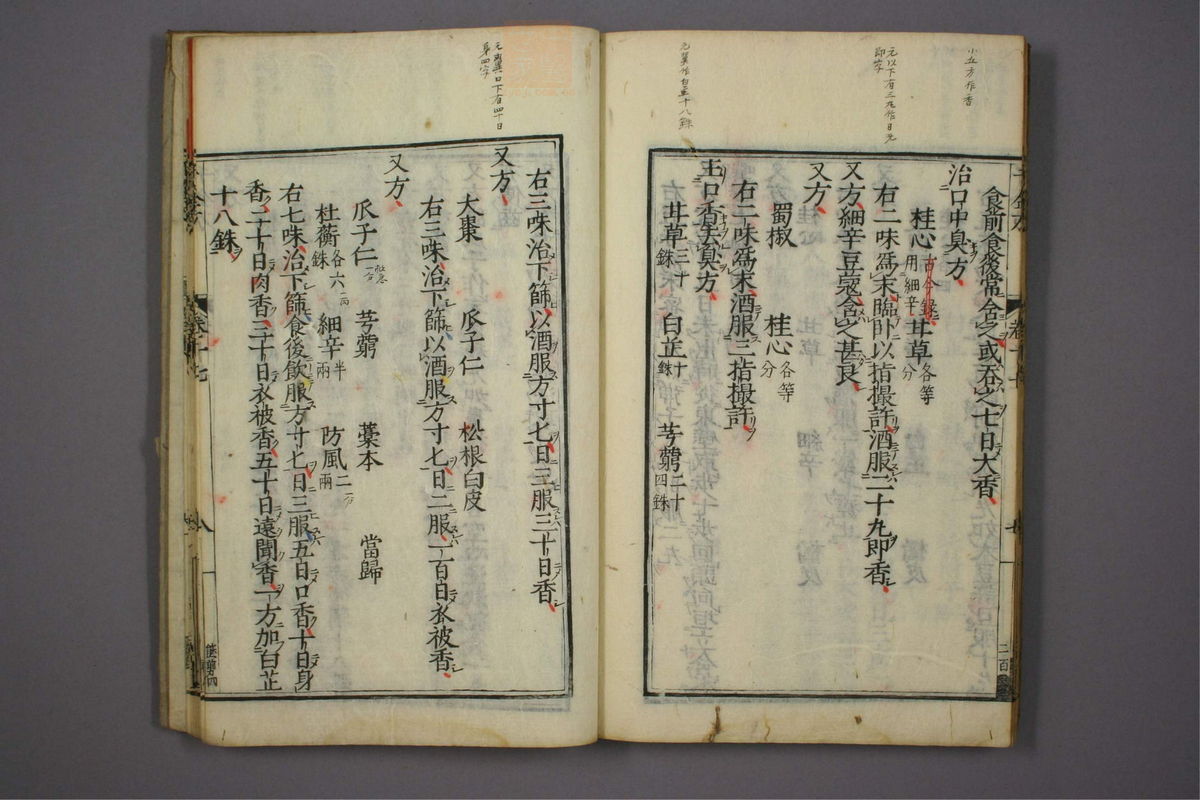 小五方作香
元以下有三丸作日元
即字
元翼作白芷十八銖
食前食後常含之或吞之七日大香
治口中臭方
桂心古今錄用細辛 甘草各等分
右二味爲末臨卧以三指撮許酒服二十九即香
又方細辛豆蔻含之甚良
又方
蜀椒 桂心各等分
右二味爲末酒服三指撮許
主口香去臭方
甘草三十銖 白芷十銖 芎藭二十四銖
元翼日下有四十日
身四字
右三味治下篩以酒服方寸匕日三服三十日香
又方
大棗 瓜子仁 松根白皮
右三味治下篩以酒服方寸匕日二服一百日衣被香
又方
瓜子仁 芎藭 藁本 當歸
杜蘅各六銖 細辛半兩 防風二兩
右七味治下篩食後飲服方寸匕日三服五日口香十日身
香二十日肉香三十日衣被香五十日遠聞香一方加白芷
十八銖